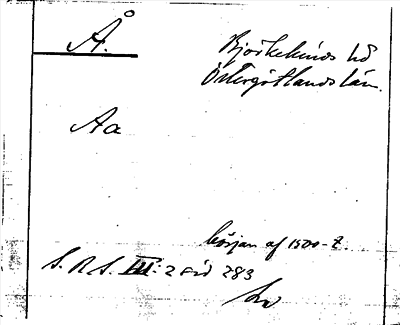 Å.
Björkekinds hd
Östergötlands län.
Aa
början af 1500-t.
S. R. S. III: 2 sid 283